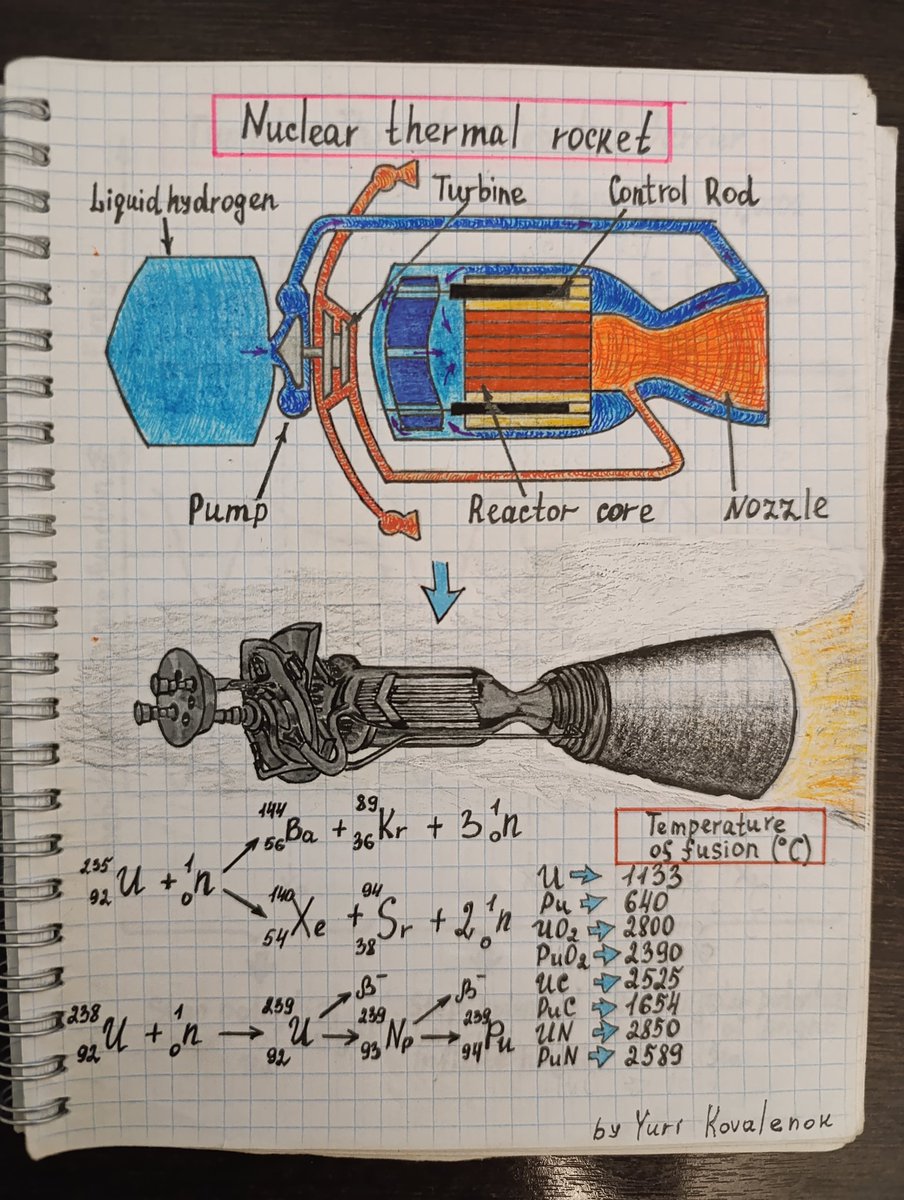 Nuclear thermal rocket
Liquid hydrogen
Turbine
Control Rod
Pump
Reactor core
Nozzle
²³⁵₉₂U + ¹₀n
¹⁴⁴₅₆Ba + ⁸⁹₃₆Kr + 3 ¹₀n
¹⁴⁰₅₄Xe + ⁹⁴₃₈Sr + 2 ¹₀n
β⁻ β⁻
²³⁸₉₂U + ¹₀n → ²³⁹₉₂U → ²³⁹₉₃Np → ²³⁹₉₄Pu
Temperature
of fusion (°C)
U → 1133
Pu → 640
UO₂ → 2800
PuO₂ → 2390
UC → 2525
PuC → 1654
UN → 2850
PuN → 2589
by Yuri Kovalenok